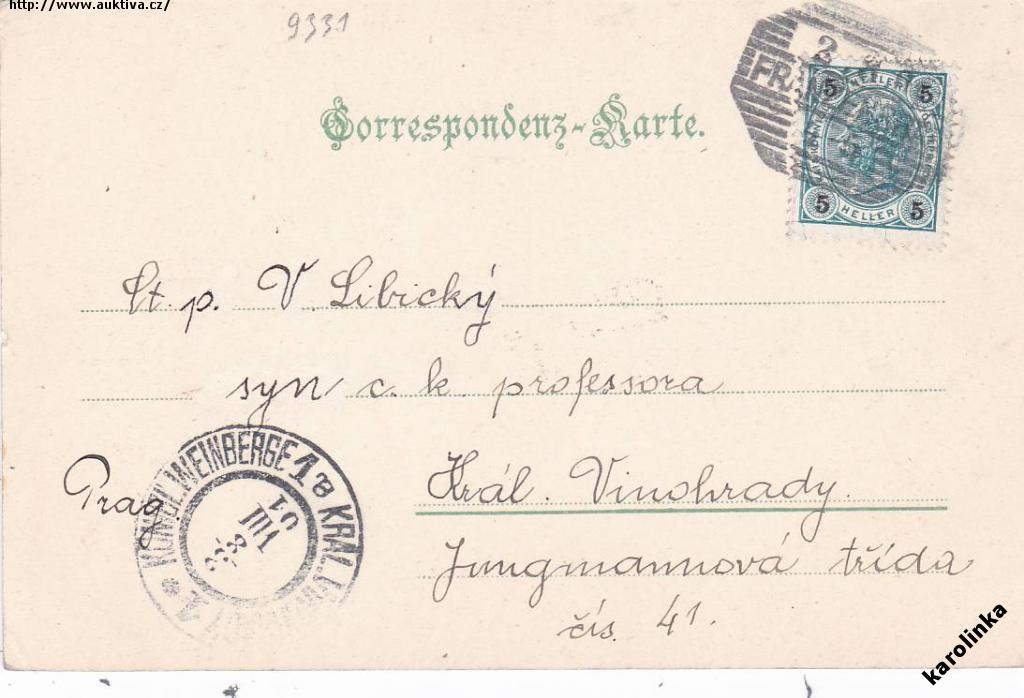 http://www.auktiva.cz/
9331
Correspondenz-Karte.
2
FRA
5 HELLER 5
5 HELLER 5
Ct. p. V Libický
syn c. k. professora
Prag.
Král. Vinohrady.
Jungmannová třída
čís. 41.
KÖNIGL. WEINBERGE 1 KRÁL.
10
VIII
karolinka